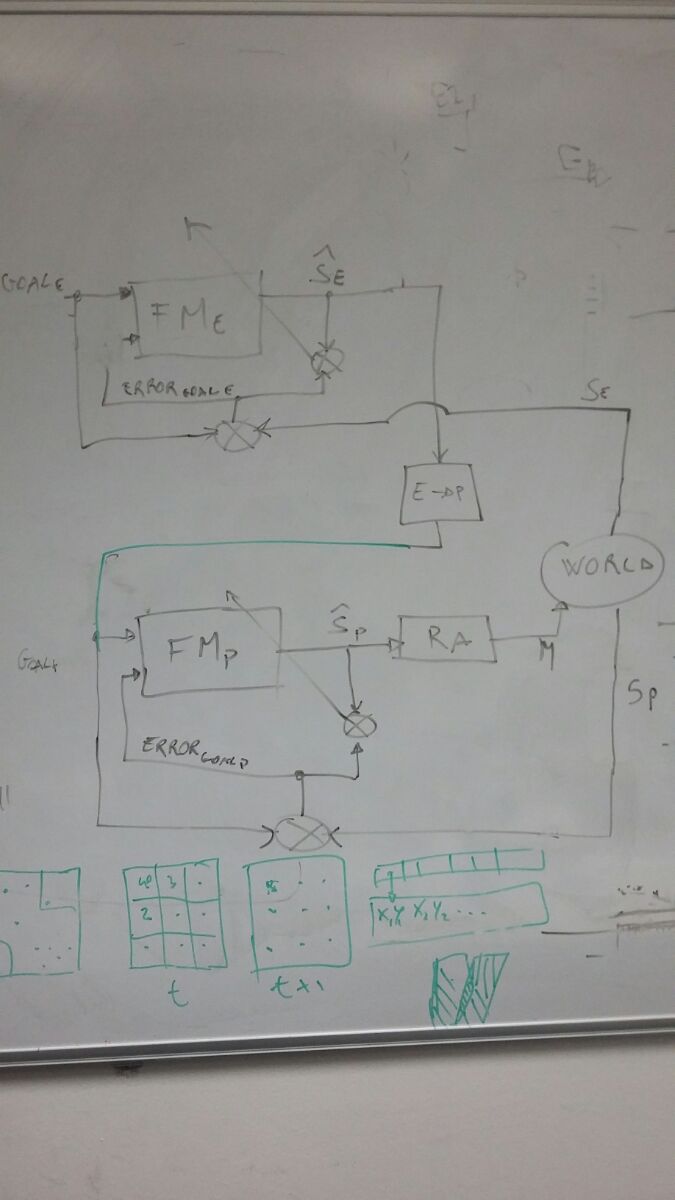 GOAL E
FM E
Ŝ E
ERROR GOAL E
S E
E→P
WORLD
GOAL P
FM P
Ŝ P
RA
M
S P
ERROR GOAL P
3
2
t
t+1
X₁ Y₁ X₂ Y₂ ...